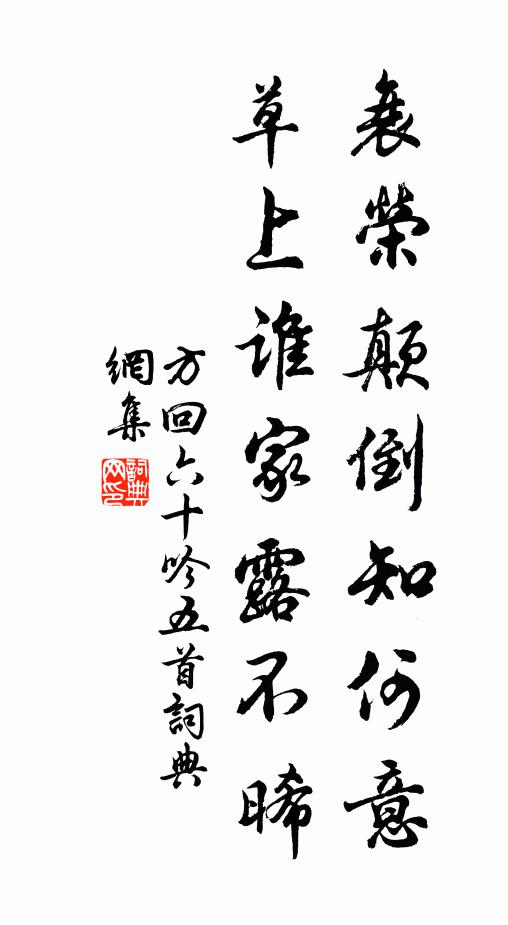 衰榮顛倒知何意
草上誰家露不晞
方回六十吟五首詞典
網集
詞典網印